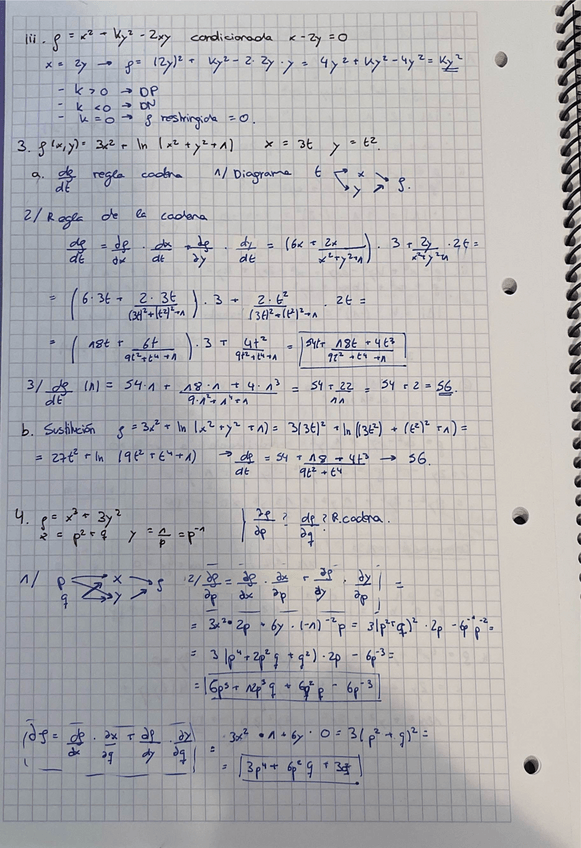 iii. f = x² + Ky² - 2xy condicionada x - 2y = 0
x = 2y → f = (2y)² + Ky² - 2·2y·y = 4y² + Ky² - 4y² = Ky²
- k > 0 → DP
- k < 0 → DN
- k = 0 → f restringida = 0.
3. f(x,y) = 3x² + ln(x² + y² + 1) x = 3t y = t².
a. df/dt regla cadena 1/ Diagrama t x y f.
2/ Regla de la cadena
df/dt = df/dx · dx/dt + df/dy · dy/dt = (6x + 2x/(x²+y²+1)) · 3 + 2y/(x²+y²+1) · 2t =
= (6·3t + 2·3t/((3t)²+(t²)²+1)) · 3 + 2·t²/((3t)²+(t²)²+1) · 2t =
= (18t + 6t/(9t²+t⁴+1)) · 3 + 4t²/(9t²+t⁴+1) = 54t + (18t + 4t³)/(9t²+t⁴+1)
3/ df/dt (1) = 54·1 + (18·1 + 4·1³)/(9·1²+1⁴+1) = 54 + 22/11 = 54 + 2 = 56.
b. Sustitución f = 3x² + ln(x² + y² + 1) = 3(3t)² + ln((3t²) + (t²)² + 1) =
= 27t² + ln(9t² + t⁴ + 1) → df/dt = 54 + (18 + 4t³)/(9t² + t⁴) → 56.
4. f = x³ + 3y² ∂f/∂p ? ∂f/∂q ? R.cadena.
x = p² + q y = 1/p = p⁻¹
1/ p q x y f 2/ ∂f/∂p = ∂f/∂x · ∂x/∂p + ∂f/∂y · ∂y/∂p =
= 3x² · 2p + 6y · (-1)⁻²p = 3(p²+q)² · 2p - 6p⁻¹p⁻² =
= 3(p⁴ + 2p²q + q²) · 2p - 6p⁻³ =
= 6p⁵ + 12p³q + 6q²p - 6p⁻³
∂f = ∂f/∂x · ∂x/∂q + ∂f/∂y · ∂y/∂q = 3x² · 1 + 6y · 0 = 3(p² + q)² =
= 3p⁴ + 6p²q + 3q